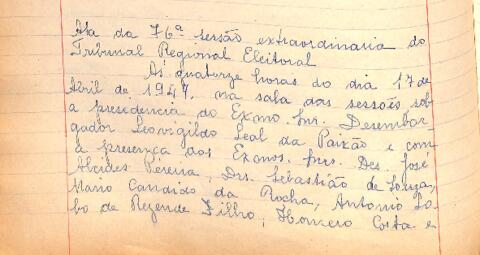 Ata da 76ª sessão extraordinaria do
Tribunal Regional Eleitoral
Ás quatorze horas do dia 17 de
Abril de 1947, na sala das sessões sob
a presidencia do Exmo. Snr. Desembar-
gador Leovigildo Leal da Paixão e com
a presença dos Exmos. Snrs. Des. José
Alcides Pereira, Drs. Sebastião de Souza,
Mario Candido da Rocha, Antonio Lo-
bo de Rezende Filho, Homero Costa e